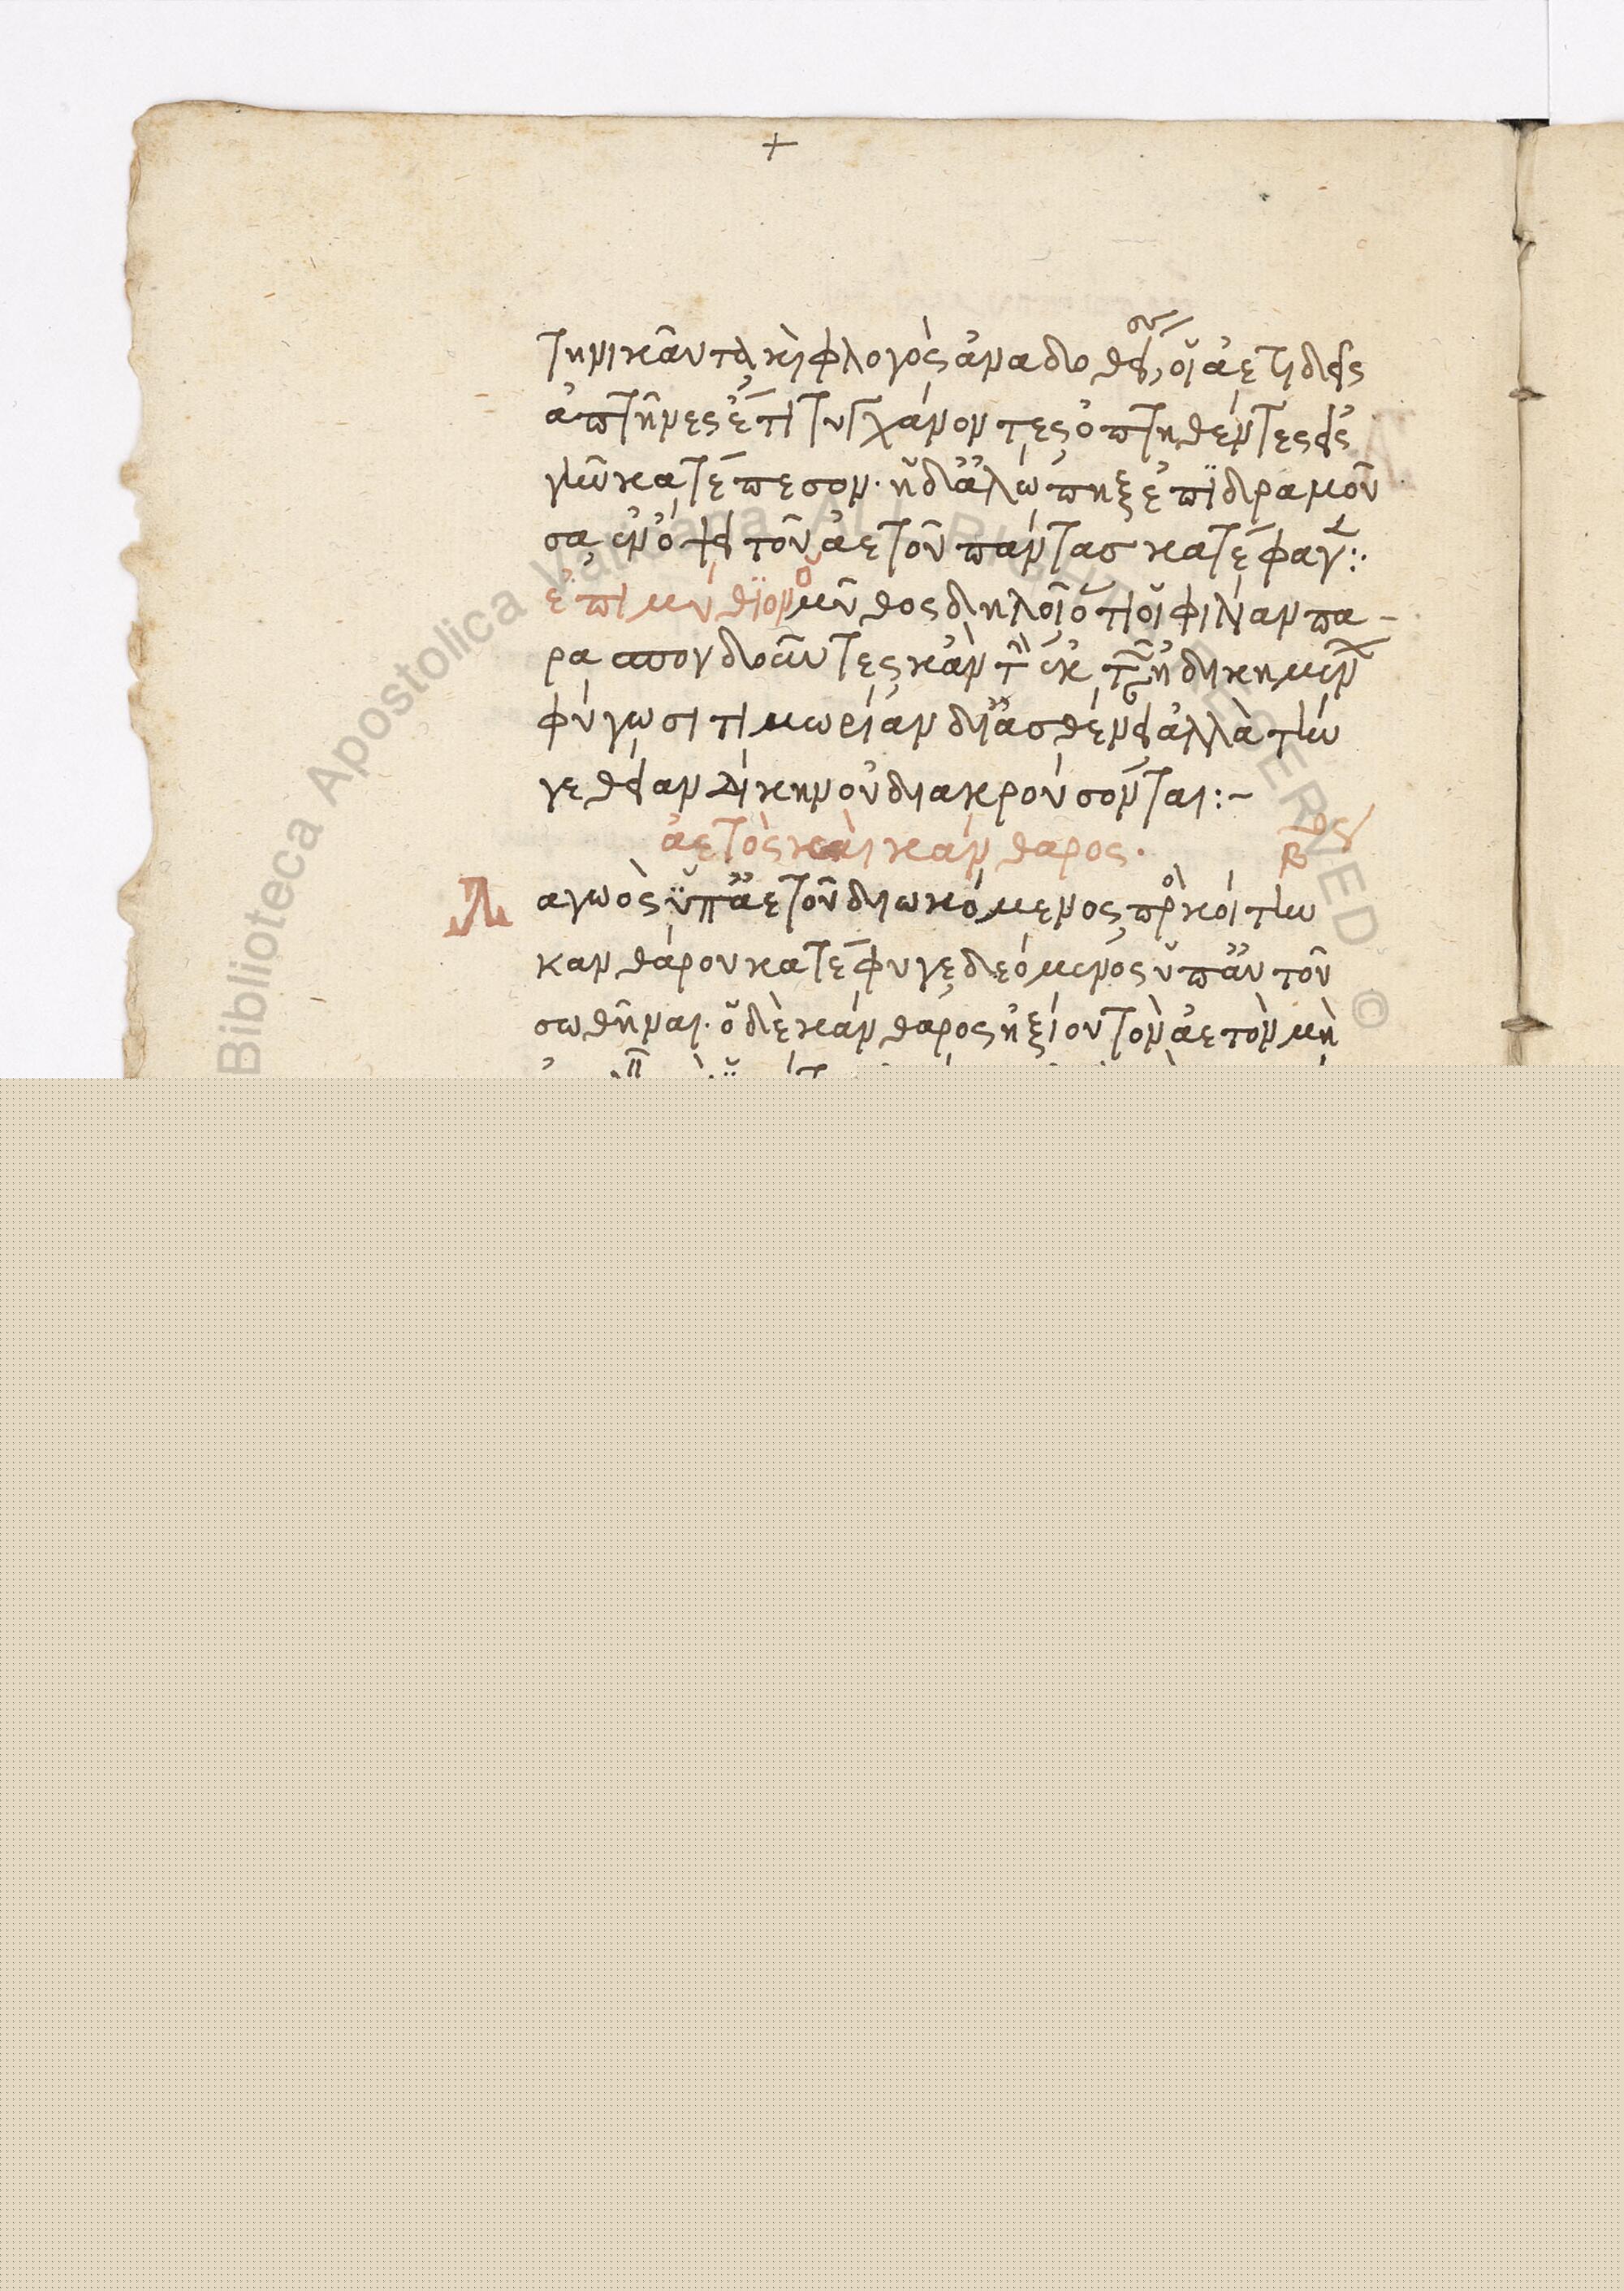 +
τηνικαῦτα κὶ φλογὸς ἀναδοθείσης, οἱ ἀετιδεῖς
ἀπτῆνες ἔτι τυγχάνοντες ὀπτηθέντες εἰς
γῆν κατέπεσον. ἡ δ' ἀλώπηξ ἐπιδραμοῦ
σα ἐν ὄψει τοῦ ἀετοῦ πάντας κατέφαγεν:·
ἐπιμύθιον ὁ μῦθος δηλοῖ ὅτι οἱ φιλίαν πα-
ρασπονδοῦντες κἂν τὴν ἐκ τῶν ἠδικημένων
φύγωσι τιμωρίαν δι' ἀσθένειαν ἀλλὰ τήν
γε θείαν δίκην οὐ διακρούσονται:-
ἀετὸς καὶ κάνθαρος.
Λαγωὸς ὑπ' ἀετοῦ διωκόμενος πρὸς κοίτην
κανθάρου κατέφυγε δεόμενος ὑπ' αὐτοῦ
σωθῆναι. ὁ δὲ κάνθαρος ἠξίου τὸν ἀετὸν μὴ
Biblioteca Apostolica Vaticana ALL RIGHTS RESERVED ©